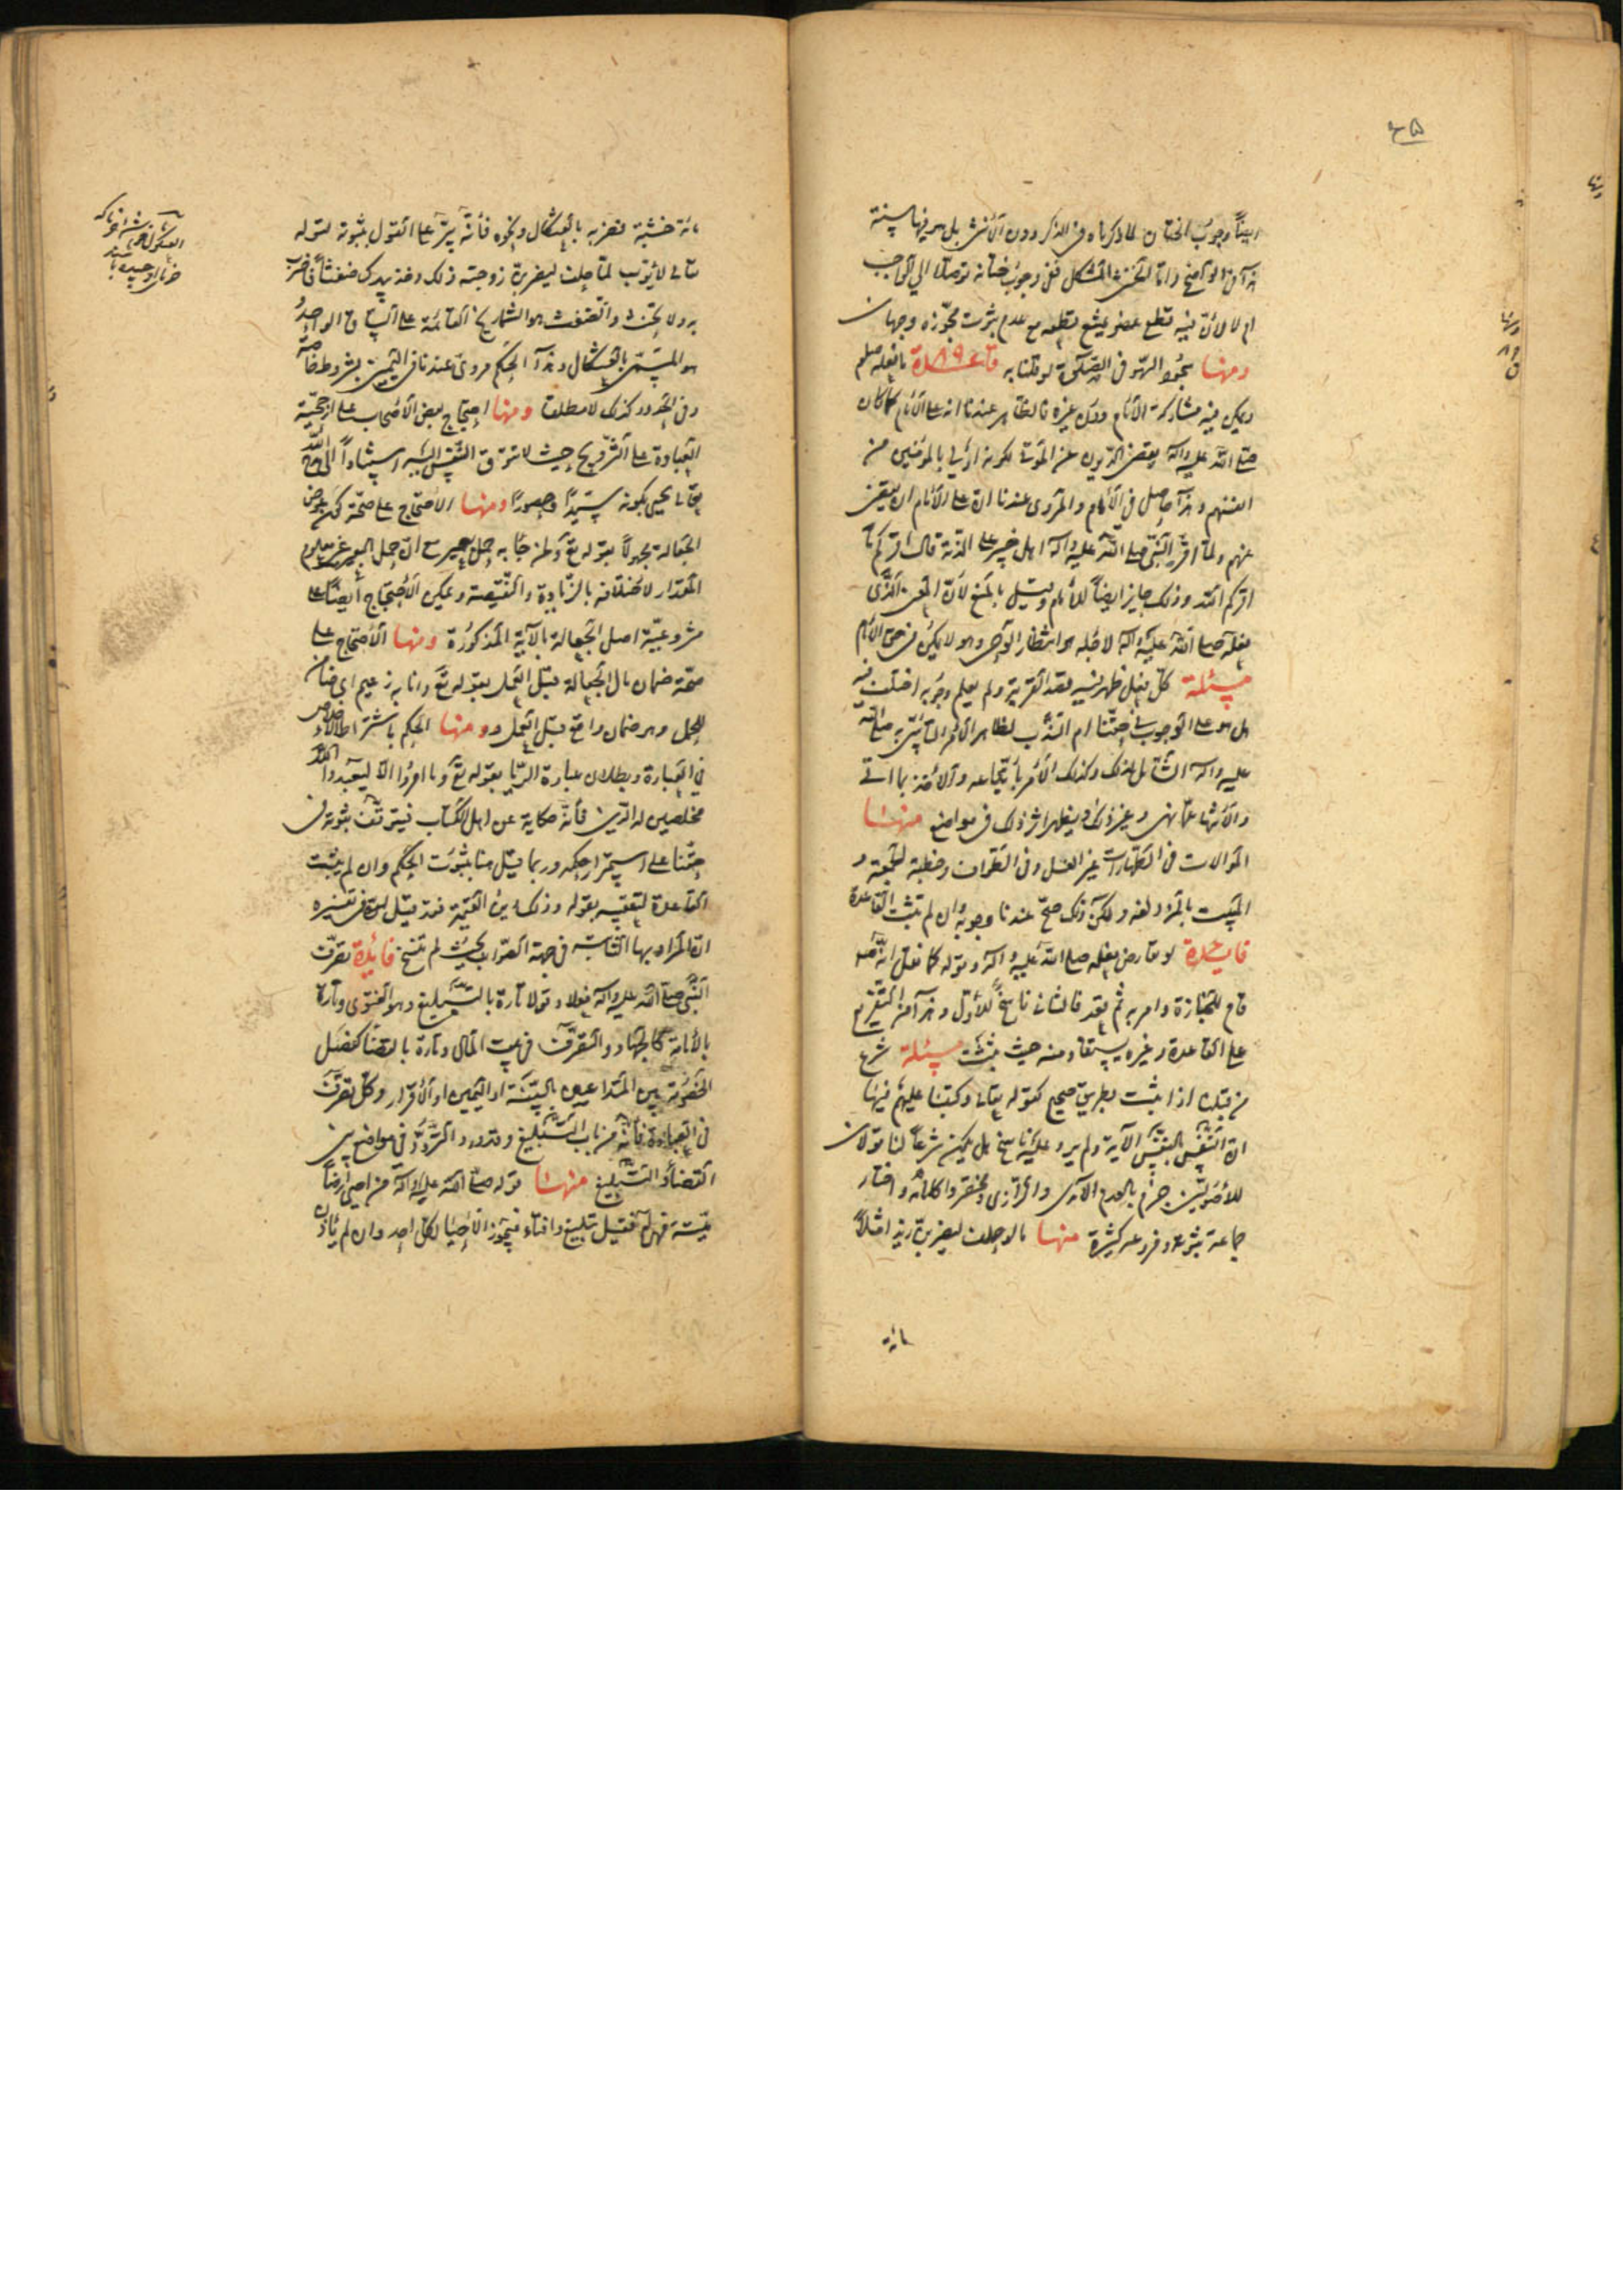 ايضا وجوب الختان لما ذكرناه في الذكر دون الانثى بل هو فيها سنة
هذا في الواضح واما الخنثى المشكل ففي وجوب ختانه توصلا الى الواجب
ام لا لان فيه قطع عضو يمتنع قطعه مع عدم ثبوت مجوزه وجهان
ومنها سجود السهو في الصلوة لو قلنا به قاعدة ما فعله صلعم
ويمكن فيه مشاركة الامام دون غيره فالظاهر عندنا انه على الامام كما كان
صلى الله عليه وآله يقضي الديون عن الموتى لكونه اولى بالمؤمنين من
انفسهم وهذا حاصل في الامام والمروي عندنا ان على الامام ان يقضي
عنهم ولما اقر النبي صلى الله عليه وآله اهل خيبر على الذمة قال اقركم ما
اقركم الله وذلك جايز ايضا للامام وقيل بالمنع لان المعنى الذي
فعله صلى الله عليه وآله لاجله هو انتظار الوحي وهو لا يمكن في حق الامام
مسئلة كل فعل ظهر فيه قصد القربة ولم يعلم وجوبه اختلف فيه
هل هو على الوجوب في حقنا ام الندب لظاهر الامر بالتأسي به صلى الله
عليه وآله الشامل لذلك وكذلك الامر باتباعه والاخذ بما اتى
والانتهاء عما نهى وغير ذلك ويظهر اثر ذلك في مواضع منها
الموالات في الطهارات غير الغسل وفي الطواف وخطبة الجمعة و
المبيت بالمزدلفه ولكن ذلك صح عندنا وجوبه وان لم تثبت القاعدة
فايدة لو تعارض فعله صلى الله عليه وآله وقوله كما نقل انه صلى
قام للجنازة وامر به ثم قعد فالثاني ناسخ للاول وهذا من التفريع
على القاعدة وغيره يستفاد منه حيث يثبت مسئلة شرع
من قبلنا اذا ثبت بطريق صحيح كقوله تعالى وكتبنا عليهم فيها
ان النفس بالنفس الآية ولم يرد عليه ناسخ هل يكون شرعا لنا قولان
للاصوليين جزم بالعدم الآمدى والرازى ومختصروا كلامه واختار
جماعة ثبوته وفروعه كثيرة منها ما لو حلف ليضربن زيدا مثلا
مائة
مائة خشبة فضربه بالعثكال ونحوه فانه يبر على القول بثبوته لقوله
تعالى لايوب لما حلف ليضربن زوجته ذلك وخذ بيدك ضغثا فاضرب
به ولا تحنث والضغث هو الشماريخ القائمة على الساق الواحد
هو المسمى بالعثكال وهذا الحكم مروي عندنا في اليمين بشروط خاصة
وفي الحدود كذلك لا مطلقا ومنها احتجاج بعض الاصحاب على ارجحية
العبادة على التزويج حيث لا تتوق النفس اليه استنادا الى مدح الله
تعالى يحيى بكونه سيدا وحصورا ومنها الاحتجاج على صحة كون عوض
الجعالة مجهولا بقوله تع ولمن جاء به حمل بعير مع ان حمل البعير غير معلوم
المقدار لاختلافه بالزيادة والنقيصة ويمكن الاحتجاج ايضا على
مشروعية اصل الجعالة بالآية المذكورة ومنها الاحتجاج على
صحة ضمان مال الجعالة قبل العمل بقوله تع وانا به زعيم اي ضامن
للحمل وهو ضمان واقع قبل العمل ومنها الحكم باشتراط الاخلاص
في العبادة وبطلان عبادة الريا بقوله تع وما امروا الا ليعبدوا الله
مخلصين له الدين فانه حكاية عن اهل الكتاب فيتوقف ثبوته في
حقنا على استمرار حكمه وربما قيل هنا بثبوت الحكم وان لم يثبت
القاعدة لتعقبه بقوله وذلك دين القيمة فقد قيل في تفسيره
ان المراد بها الثابتة في جهة الصواب بحيث لم تنسخ فائدة تصرف
النبي صلى الله عليه وآله فعلا وقولا تارة بالتبليغ وهو الفتوى وتارة
بالامامة كالجهاد والتصرف في بيت المال وتارة بالقضا كفصل
الخصومة بين المتداعيين بالبينة او اليمين او الاقرار وكل تصرف
في العبادة فانه من باب التبليغ وقد ورد التردد في مواضع بين
القضاء والتبليغ منها قوله صلى الله عليه وآله من احيى ارضا
ميتة فهي له فقيل تبليغ وافتاء فيجوز الاحياء لكل احد وان لم يأذن